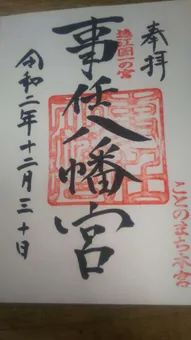 奉拝
遠江国一の宮
事任八幡宮
ことのまち八幡宮
令和二年十二月三十日